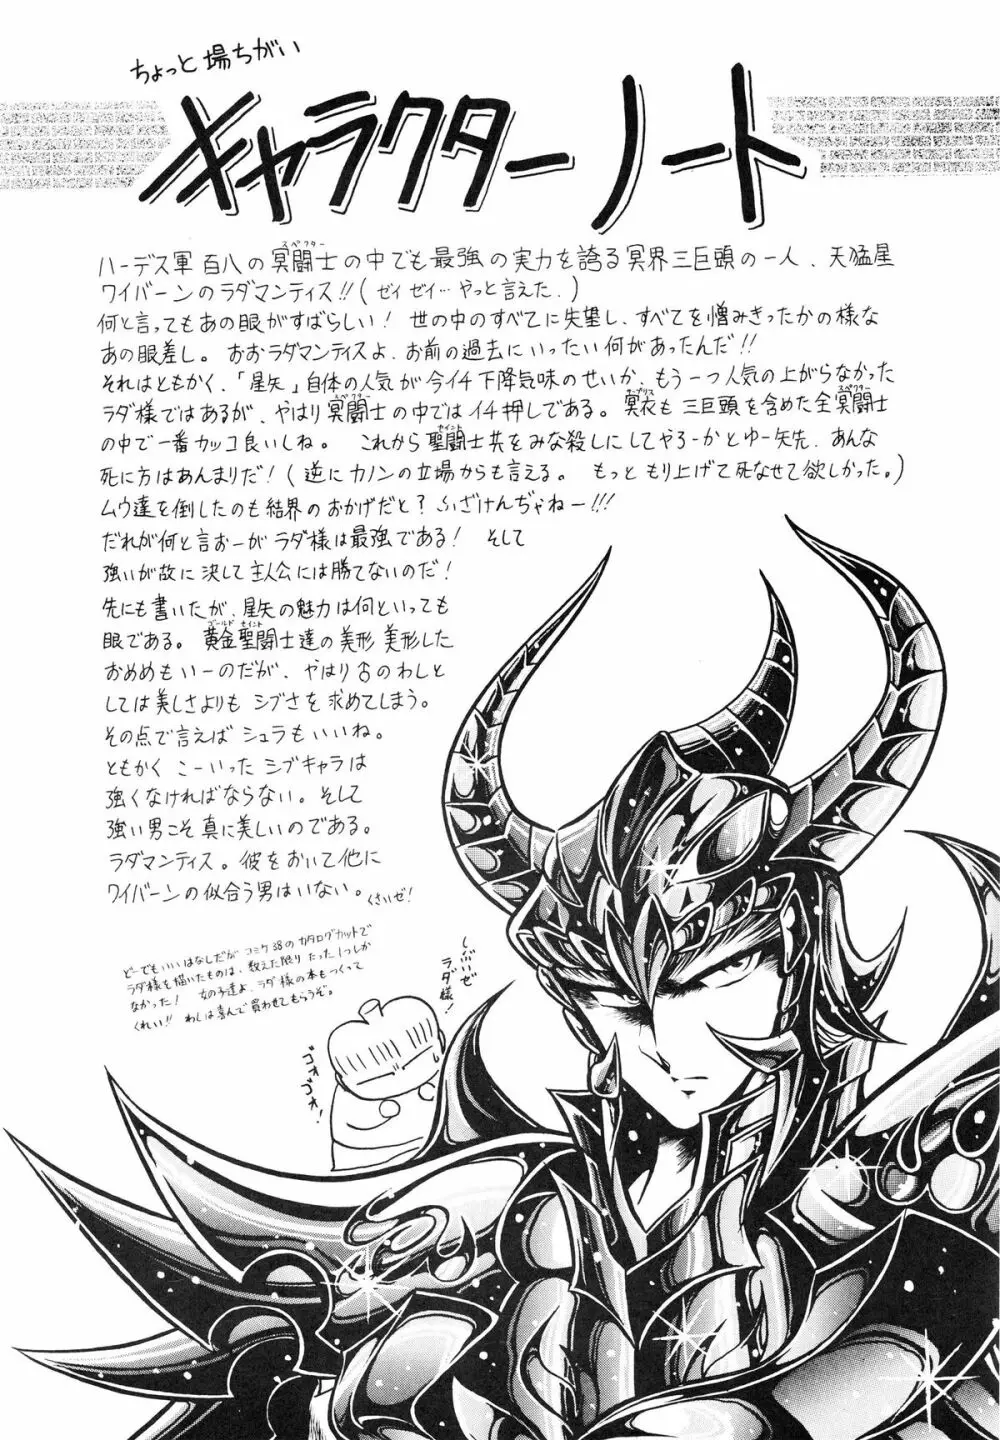 ちょっと場ちがい
キャラクターノート
スペクター
ハーデス軍 百八の冥闘士の中でも最強の実力を誇る冥界三巨頭の一人、天猛星
ワイバーンのラダマンティス!!(ゼイ ゼイ…やっと言えた、)
何と言ってもあの眼がすばらしい! 世の中のすべてに失望し、すべてを憎みきったかの様な
あの眼差し。おおラダマンティスよ、お前の過去にいったい何があったんだ!!
それはともかく、「星矢」自体の人気が今イチ下降気味のせいか、もう一つ人気の上がらなかった
スペクター サープリス スペクター
ラダ様ではあるが、やはり冥闘士の中ではイチ押しである。冥衣も三巨頭を含めた全冥闘士
セイント
の中で一番カッコ良いしね。 これから聖闘士共をみな殺しにしてやろーかとゆー矢先、あんな
死に方はあんまりだ!(逆にカノンの立場からも言える。 もっともり上げて死なせて欲しかった。)
ムウ達を倒したのも結界のおかげだと?ふざけんぢゃねー!!!
だれが何と言おーがラダ様は最強である! そして
強いが故に決して主人公には勝てないのだ!
先にも書いたが、星矢の魅力は何といっても
ゴールド セイント
眼である。黄金聖闘士達の美形美形した
おめめもいーのだが、やはり古のわしと
しては美しさよりもシブさを求めてしまう。
その点で言えばシュラもいいね。
ともかくこーいったシブキャラは
強くなければならない。そして
強い男こそ真に美しいのである。
ラダマンティス。彼をおいて他に
ワイバーンの似合う男はいない。くさいゼ!
どーでもいいはなしだがコミケ38のカタログカットで
ラダ様を描いたものは、数えた限りたった1つしか
なかった!女の子達よ、ラダ様の本もつくって
くれい!!わしは喜んで買わせてもらうぞ。
しぶいぜ
ラダ様!
ゴォゴォ!